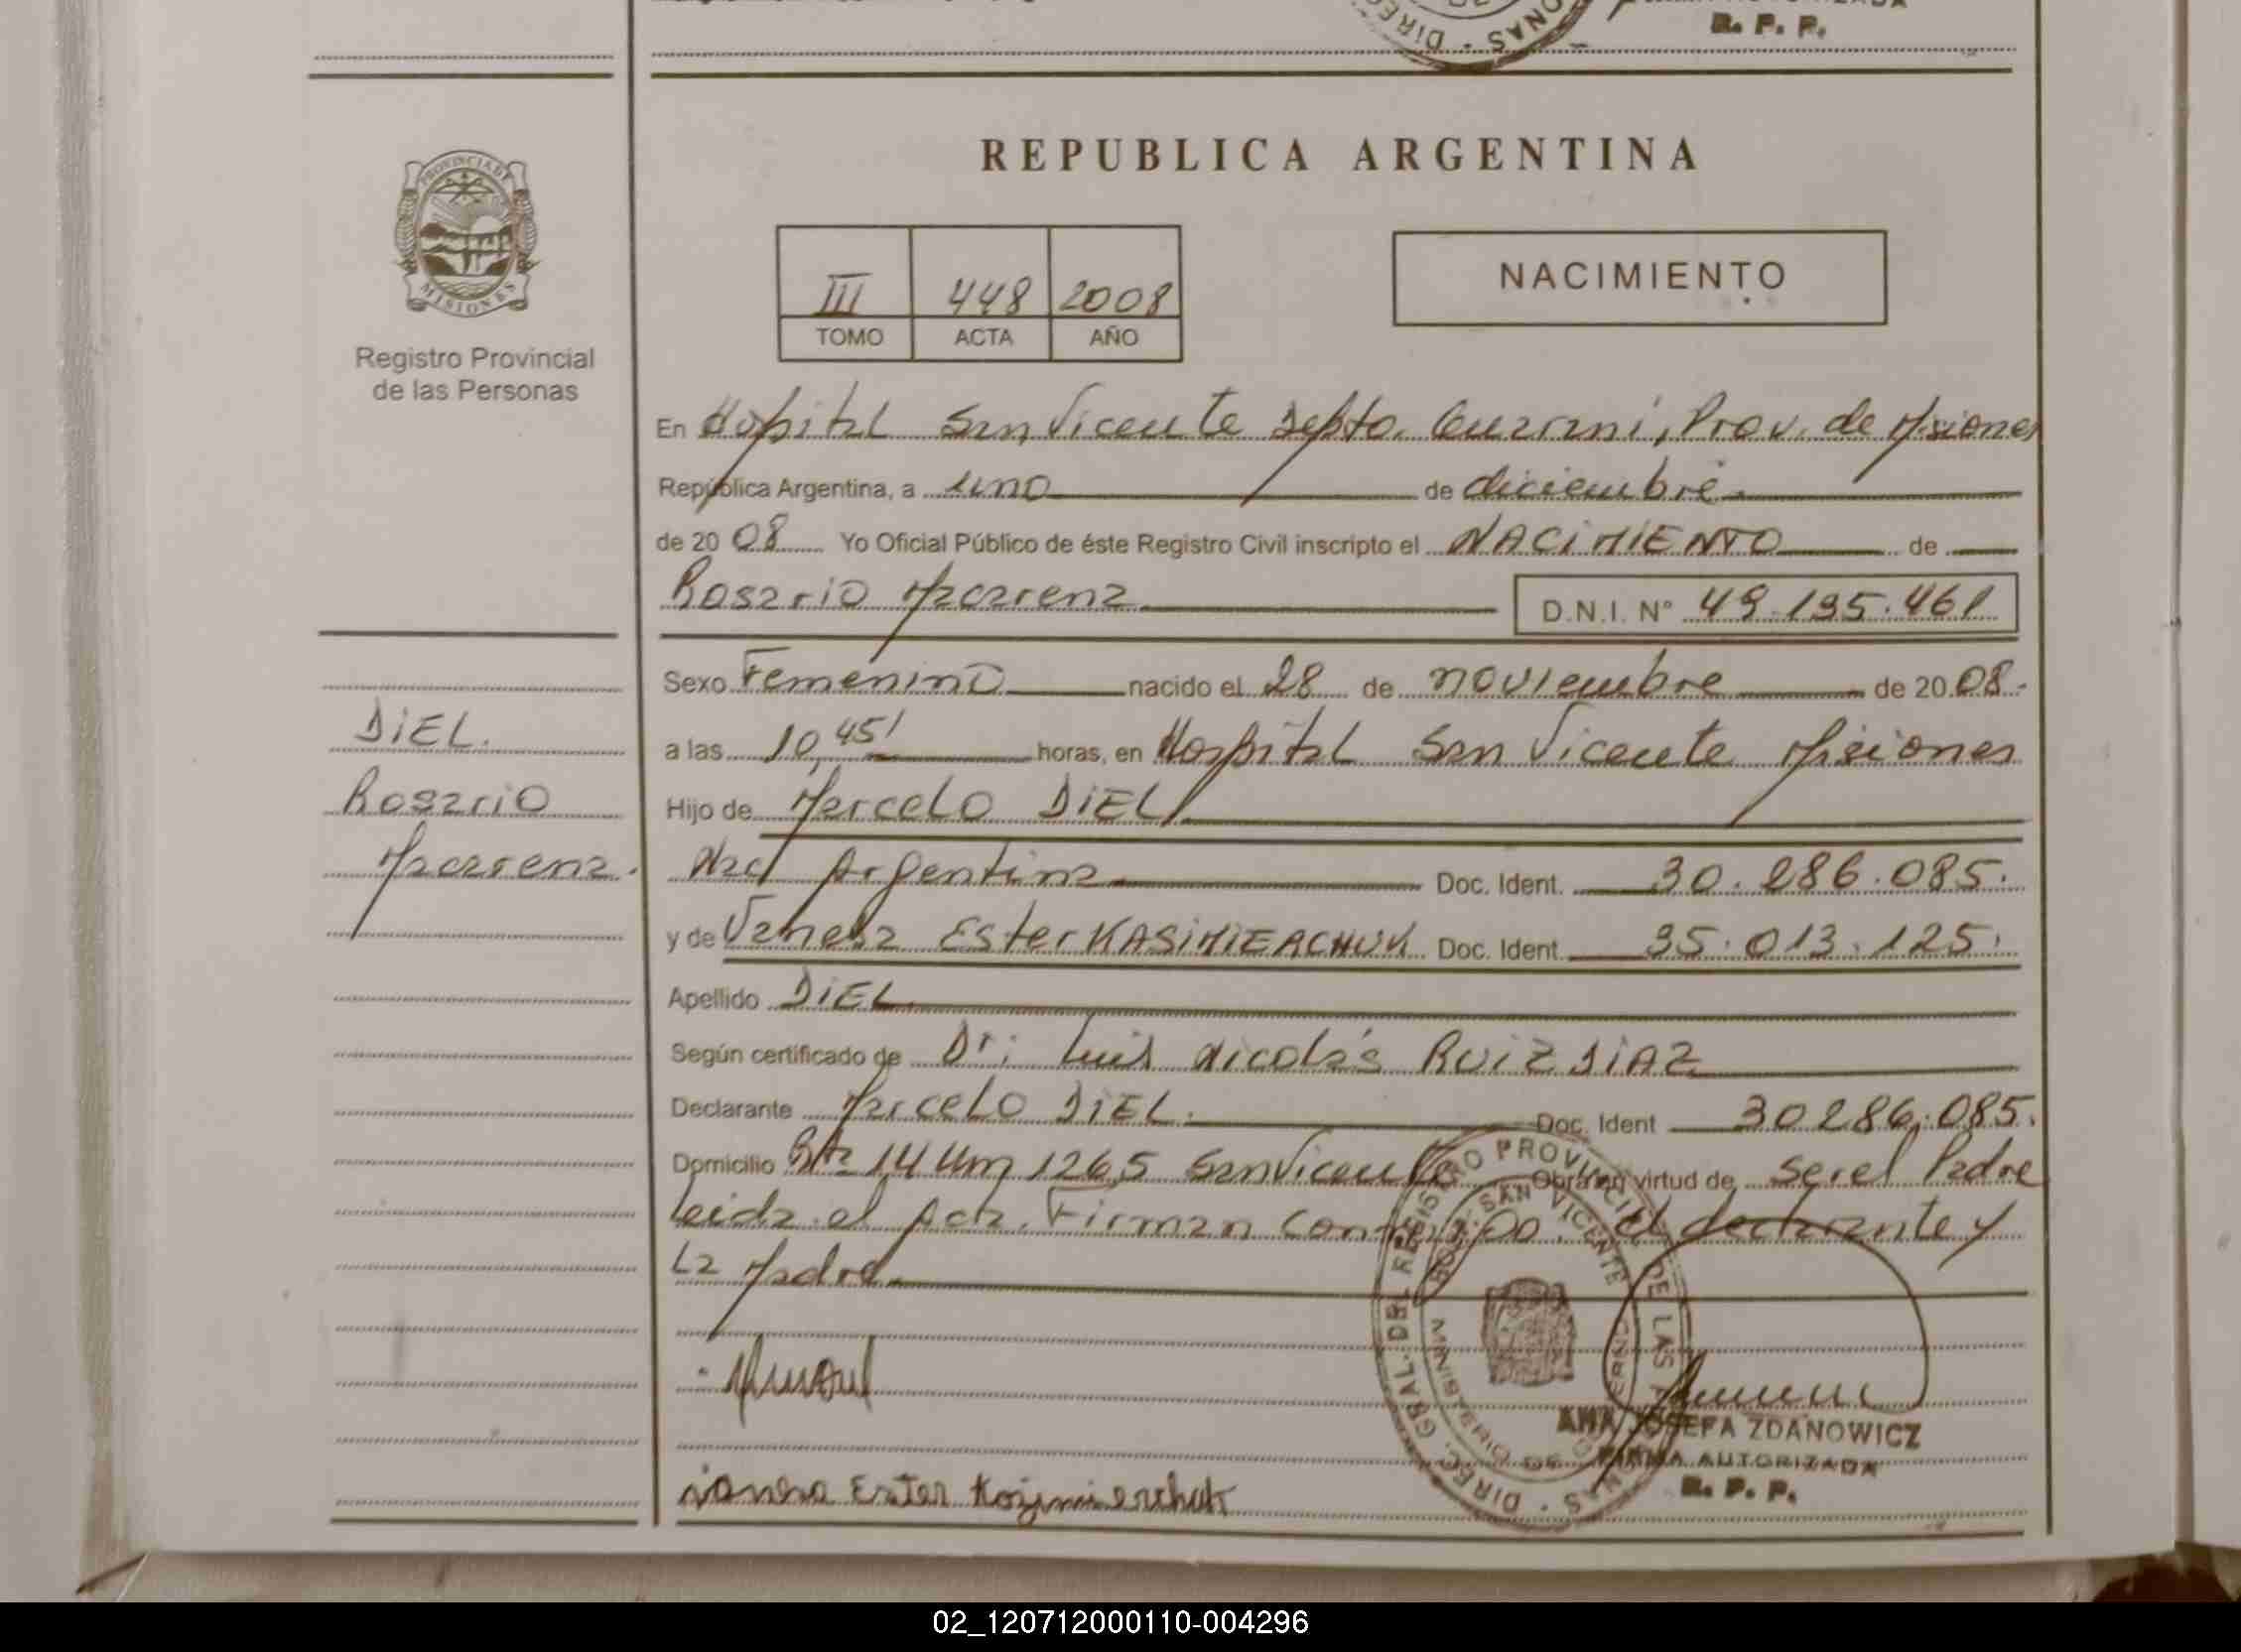 R. P. P.
REPUBLICA ARGENTINA
PROVINCIA DE
MISIONES
Registro Provincial
de las Personas
III 448 2008
TOMO ACTA AÑO
NACIMIENTO
En Hospital San Vicente Depto. Guarani, Prov. de Misiones
República Argentina, a uno de diciembre
de 2008 Yo Oficial Público de éste Registro Civil inscripto el NACIMIENTO de
Rosario Macarena D.N.I. Nº 49.195.461
Sexo Femenino nacido el 28 de noviembre de 2008.
a las 10,45' horas, en Hospital San Vicente Misiones
Hijo de Marcelo DIEL
Nac Argentina Doc. Ident. 30.286.085.
y de Vanesa Ester KASIMIERCHUK Doc. Ident. 35.013.125.
Apellido DIEL
Según certificado de Dr. Luis Nicolás RUIZ DIAZ
Declarante Marcelo DIEL. Doc. Ident 30286.085.
Domicilio Ruta 14 Km 1265 San Vicente Obra en virtud de ser el Padre
leida el Acta. Firman conmigo el declarante y
La Madre
DIEL.
Rosario
Macarena.
Vanesa Ester Kozimierchuk
DIREC. GRAL. DEL REGISTRO PROVINCIAL DE LAS PERSONAS
SAN VICENTE
ANA JOSEFA ZDANOWICZ
FIRMA AUTORIZADA
R. P. P.
02_120712000110-004296